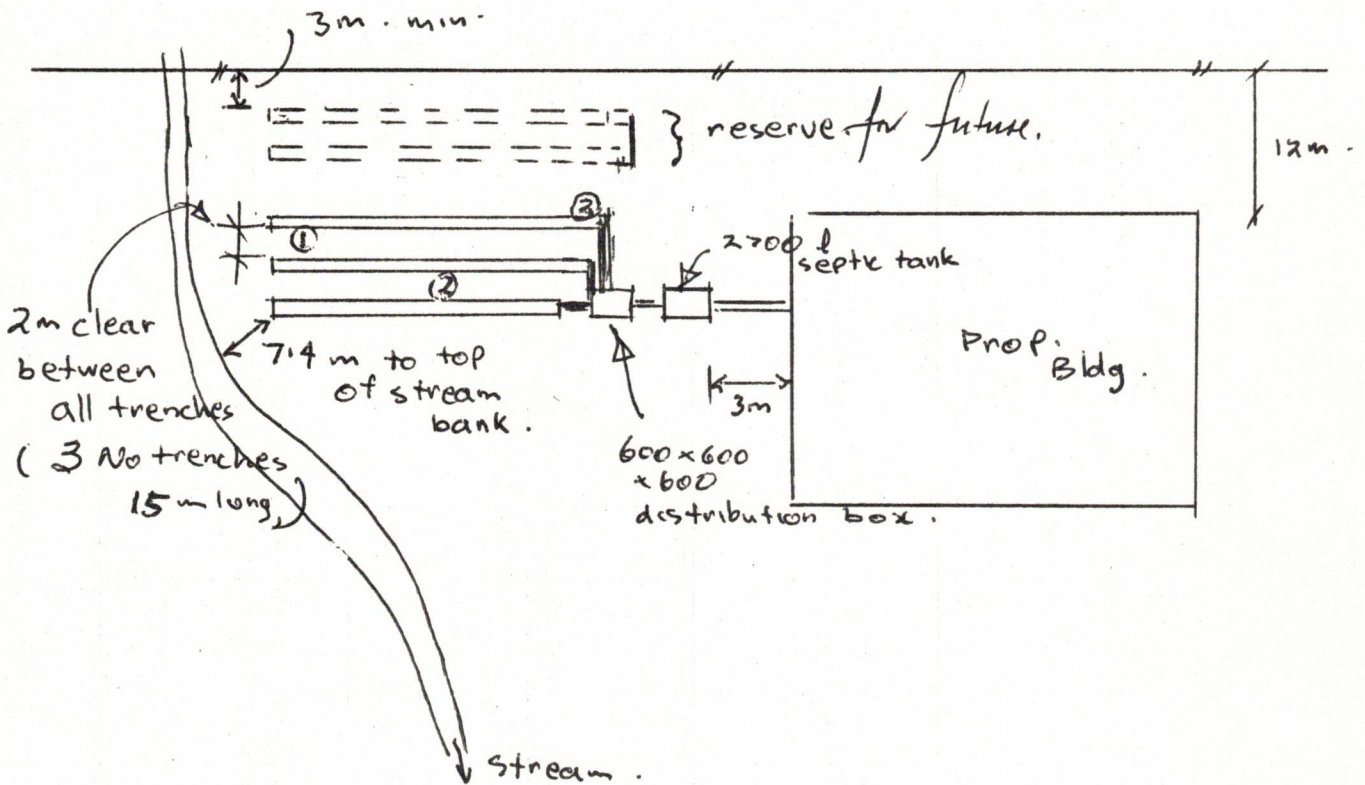 3m. min.
} reserve for future.
12m.
③
①
2700 l
septic tank
②
2m clear
between
all trenches
( 3 No trenches
15 m long )
7.4 m to top
of stream
bank.
Prop.
Bldg.
3m
600 x 600
x 600
distribution box.
stream.